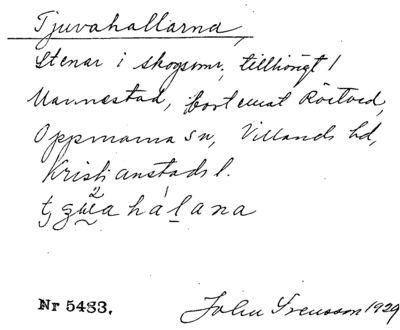 Tjuvahallarna,
Stenar i skogsomr. tillhörigt
Mannestad, bort emot Röetved,
Oppmanna sn, Villands hd,
Kristianstads l.
Nr 5483. John Svensson 1929